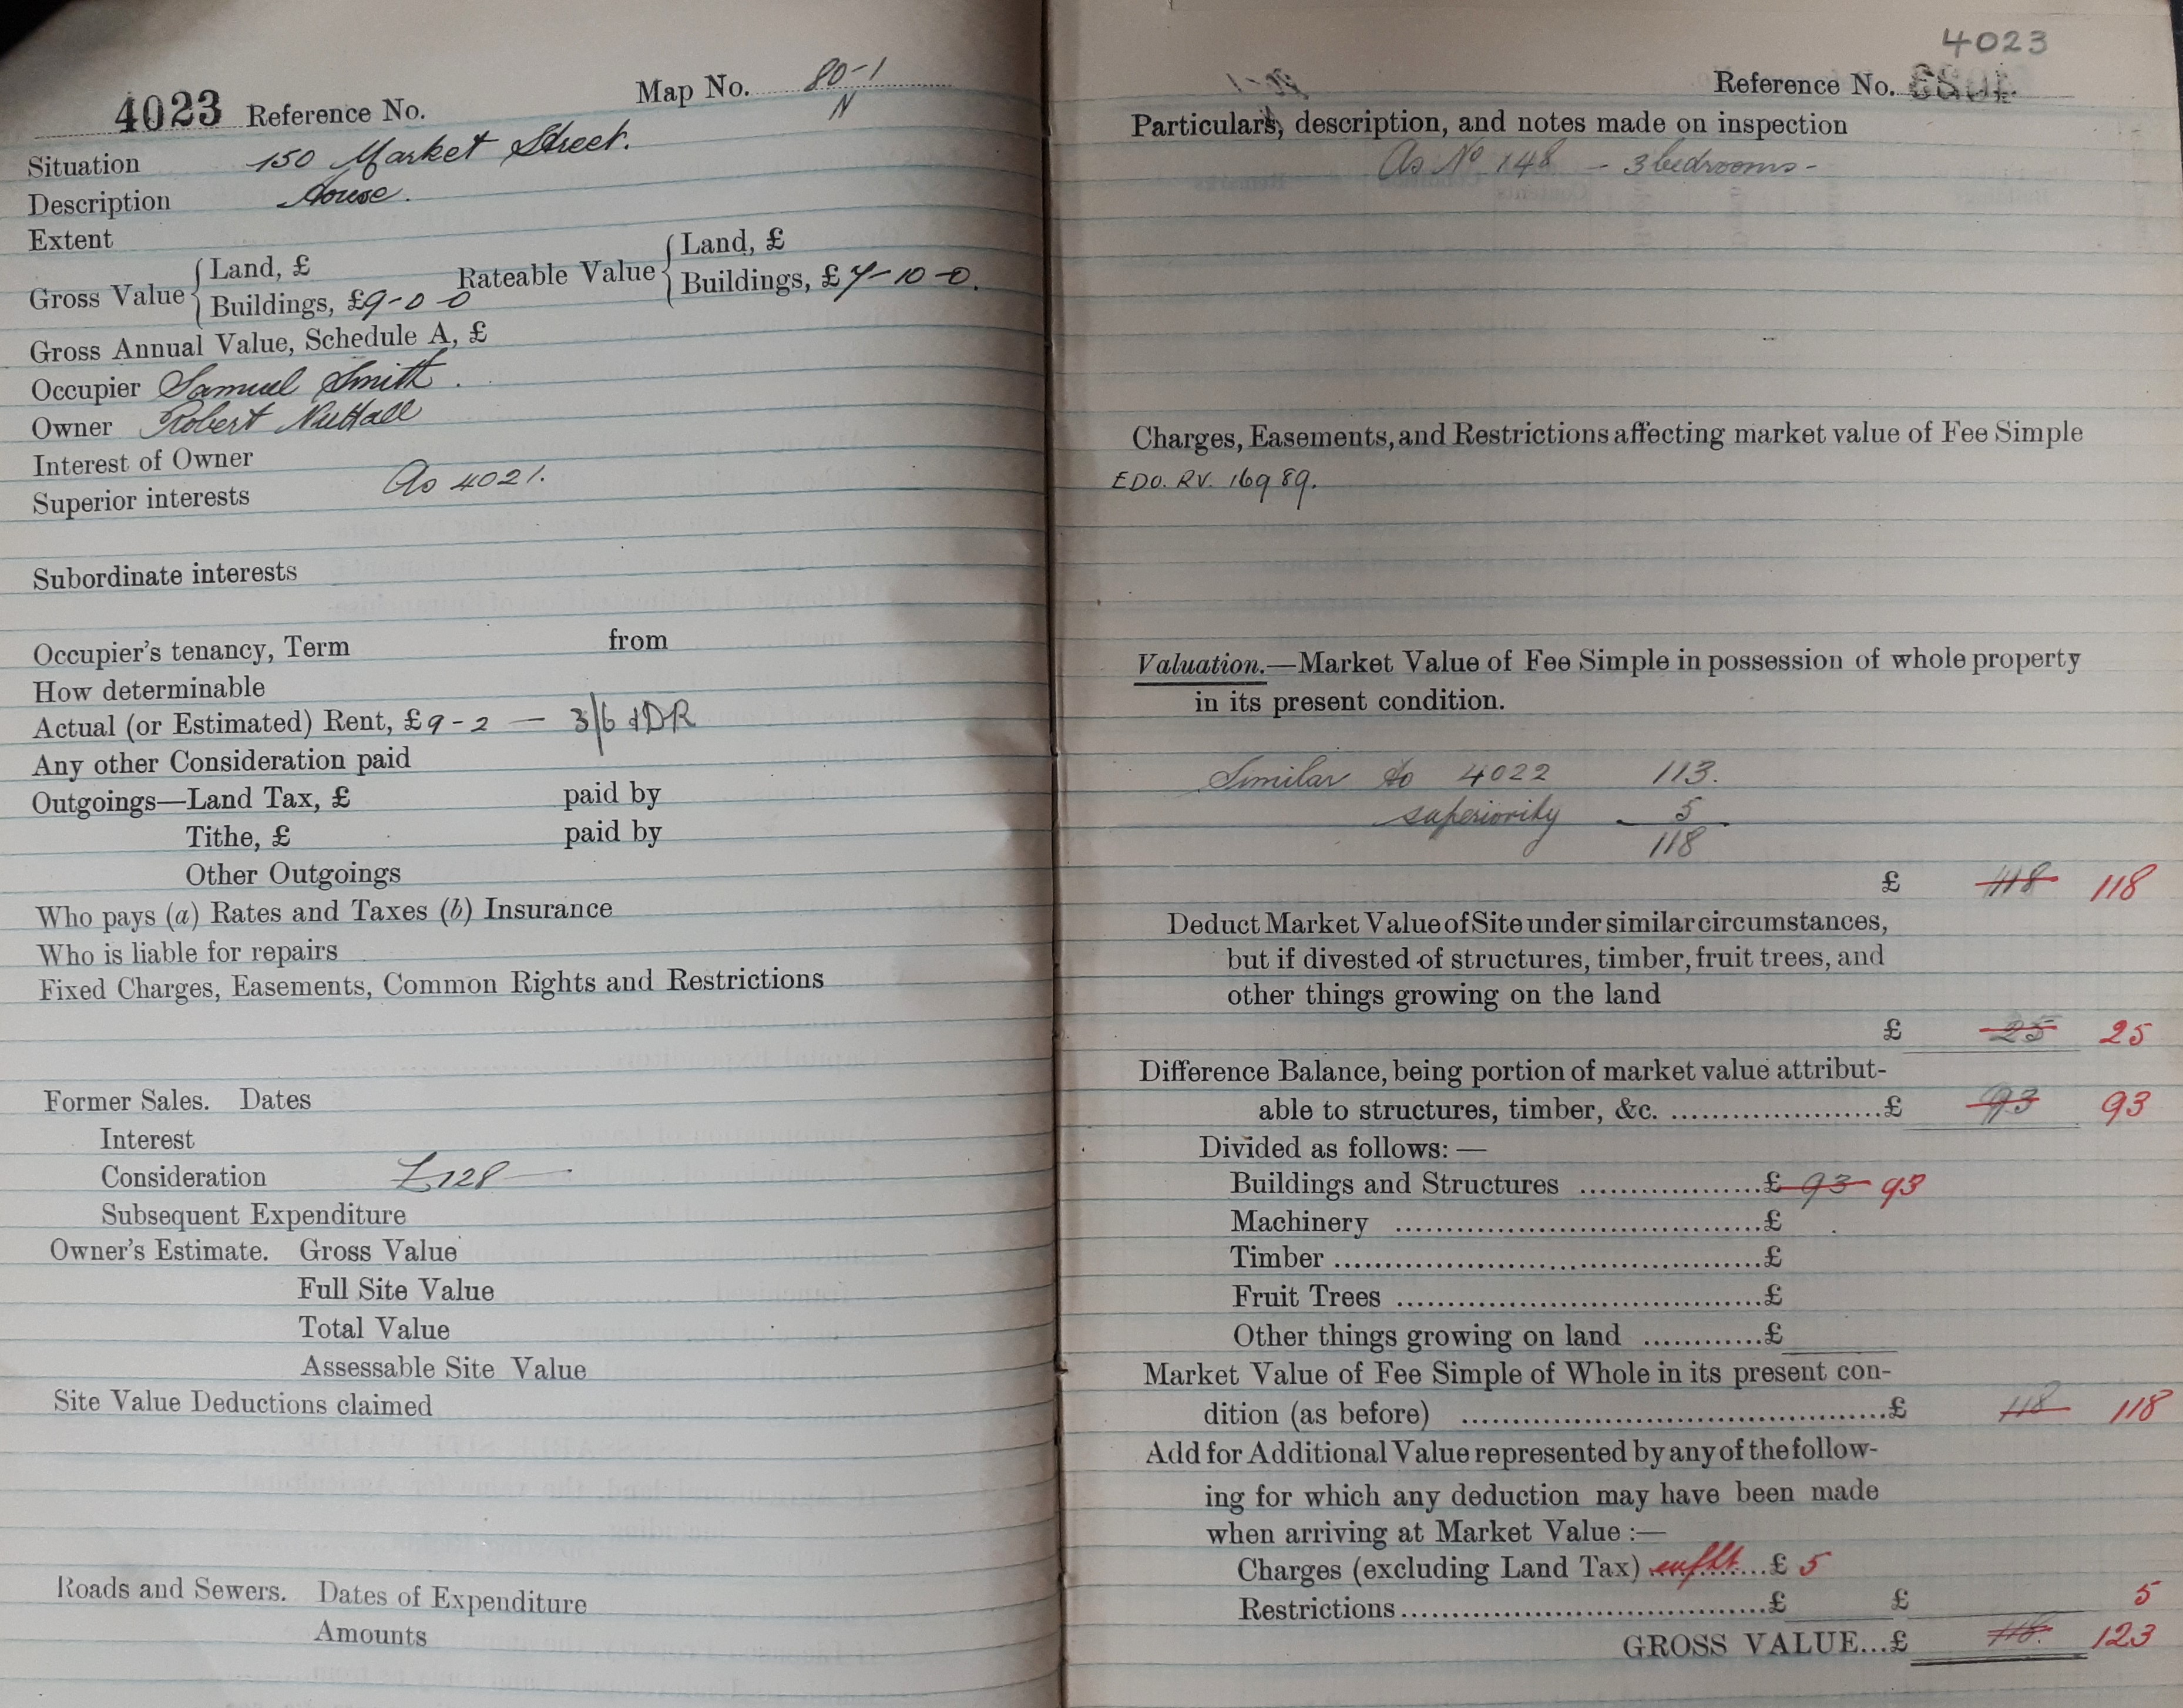 4023 Reference No. Map No. 80-1
N
Situation 150 Market Street.
Description House.
Extent
Gross Value { Land, £ Rateable Value { Land, £
Buildings, £9-0-0 Buildings, £7-10-0.
Gross Annual Value, Schedule A, £
Occupier Samuel Smith.
Owner Robert Nuttall
Interest of Owner
Superior interests As 4021.
Subordinate interests
Occupier's tenancy, Term from
How determinable
Actual (or Estimated) Rent, £9-2 — 3/6 DR
Any other Consideration paid
Outgoings—Land Tax, £ paid by
Tithe, £ paid by
Other Outgoings
Who pays (a) Rates and Taxes (b) Insurance
Who is liable for repairs
Fixed Charges, Easements, Common Rights and Restrictions
Former Sales. Dates
Interest
Consideration £128
Subsequent Expenditure
Owner's Estimate. Gross Value
Full Site Value
Total Value
Assessable Site Value
Site Value Deductions claimed
Roads and Sewers. Dates of Expenditure
Amounts
4023
Reference No.
Particulars, description, and notes made on inspection
As No 148 - 3 bedrooms -
Charges, Easements, and Restrictions affecting market value of Fee Simple
EDO. RV. 16989.
Valuation.—Market Value of Fee Simple in possession of whole property
in its present condition.
Similar to 4022 113.
superiority 5
118
£ 118 118
Deduct Market Value of Site under similar circumstances,
but if divested of structures, timber, fruit trees, and
other things growing on the land
£ 25 25
Difference Balance, being portion of market value attribut-
able to structures, timber, &c. ....................£ 93 93
Divided as follows:—
Buildings and Structures .................£ 93 93
Machinery ..................................£
Timber ........................................£
Fruit Trees ..................................£
Other things growing on land ...........£
Market Value of Fee Simple of Whole in its present con-
dition (as before) .......................................£ 118 118
Add for Additional Value represented by any of the follow-
ing for which any deduction may have been made
when arriving at Market Value :—
Charges (excluding Land Tax) ...£ 5
Restrictions.................................£ £ 5
GROSS VALUE...£ 118. 123